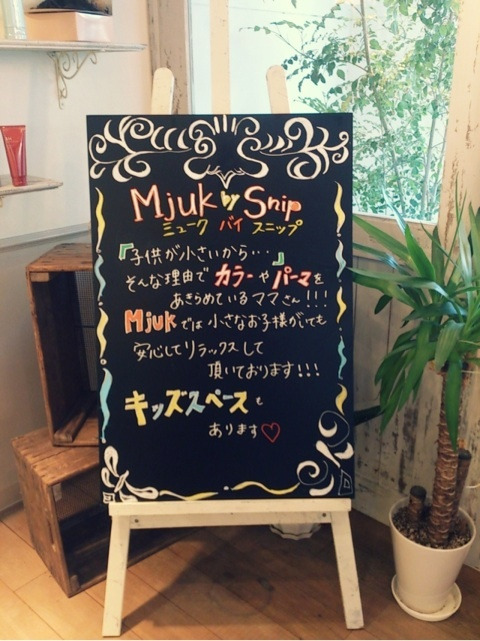 Mjuk by Snip
ミューク バイ スニップ
『子供が小さいから・・』
そんな理由で カラーや パーマを
あきらめているママさん!!!
Mjukでは小さなお子様がいても
安心してリラックスして
頂いております!!!
キッズスペースも
あります♡